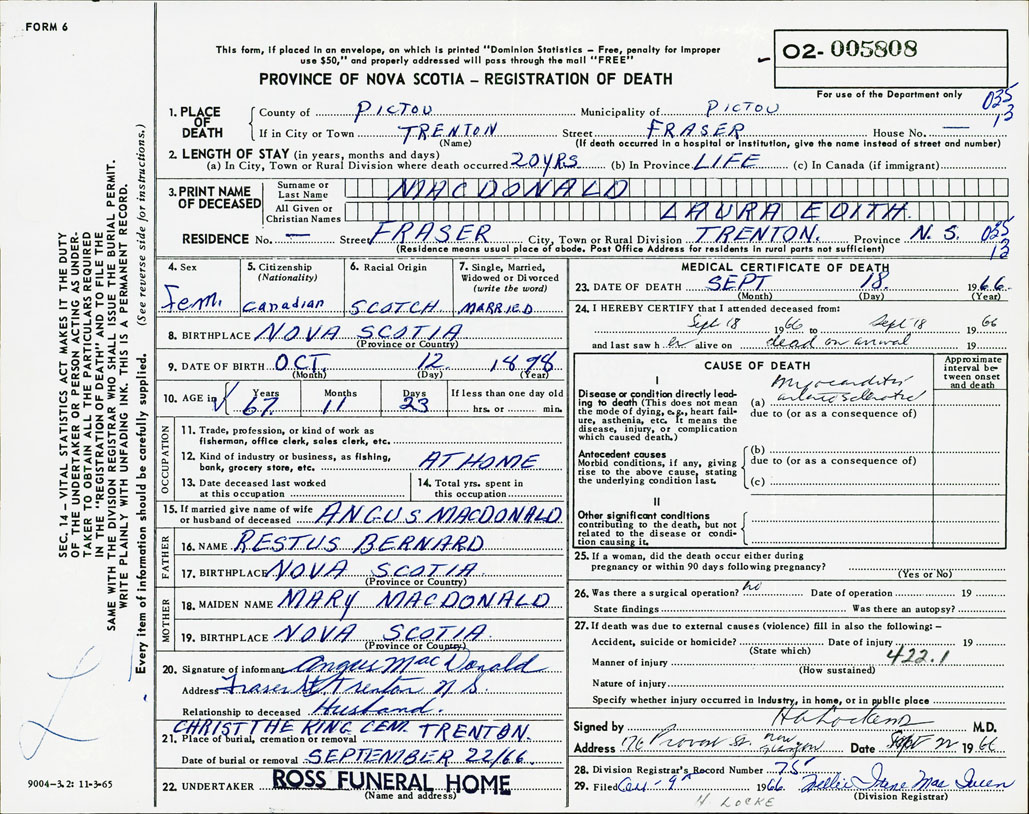 FORM 6
This form, if placed in an envelope, on which is printed "Dominion Statistics – Free, penalty for improper
use $50," and properly addressed will pass through the mail "FREE"
PROVINCE OF NOVA SCOTIA – REGISTRATION OF DEATH
02- 005808
For use of the Department only
035
12
1. PLACE OF DEATH
County of PICTOU Municipality of PICTOU
If in City or Town TRENTON Street FRASER House No. —
(Name) (If death occurred in a hospital or institution, give the name instead of street and number)
2. LENGTH OF STAY (in years, months and days)
(a) In City, Town or Rural Division where death occurred 20 YRS (b) In Province LIFE (c) In Canada (if immigrant)
3. PRINT NAME OF DECEASED
Surname or Last Name MACDONALD
All Given or Christian Names LAURA EDITH
RESIDENCE No. — Street FRASER City, Town or Rural Division TRENTON. Province N. S. 035
(Residence means usual place of abode. Post Office Address for residents in rural parts not sufficient) 12
4. Sex Fem.
5. Citizenship (Nationality) Canadian
6. Racial Origin SCOTCH
7. Single, Married, Widowed or Divorced (write the word) MARRIED
8. BIRTHPLACE NOVA SCOTIA
(Province or Country)
9. DATE OF BIRTH OCT 12 1898
(Month) (Day) (Year)
10. AGE in Years 67 Months 11 Days 23 If less than one day old hrs. or min.
OCCUPATION
11. Trade, profession, or kind of work as
fisherman, office clerk, sales clerk, etc.
12. Kind of industry or business, as fishing,
bank, grocery store, etc. AT HOME
13. Date deceased last worked
at this occupation
14. Total yrs. spent in
this occupation
15. If married give name of wife
or husband of deceased ANGUS MACDONALD
FATHER
16. NAME RESTUS BERNARD
17. BIRTHPLACE NOVA SCOTIA
(Province or Country)
MOTHER
18. MAIDEN NAME MARY MACDONALD
19. BIRTHPLACE NOVA SCOTIA
(Province or Country)
20. Signature of informant Angus MacDonald
Address Fraser St. Trenton N S.
Relationship to deceased Husband.
CHRIST THE KING CEM. TRENTON.
21. Place of burial, cremation or removal
Date of burial or removal SEPTEMBER 22/66
22. UNDERTAKER ROSS FUNERAL HOME
(Name and address)
MEDICAL CERTIFICATE OF DEATH
23. DATE OF DEATH SEPT 18. 1966.
(Month) (Day) (Year)
24. I HEREBY CERTIFY that I attended deceased from:
Sept 18 1966 to Sept 18 1966
and last saw her alive on dead on arrival 19
CAUSE OF DEATH
Approximate interval between onset and death
I
Disease or condition directly leading to death (This does not mean the mode of dying, e.g., heart failure, asthenia, etc. It means the disease, injury, or complication which caused death.)
(a) Myocarditis
arteriosclerotic
due to (or as a consequence of)
Antecedent causes
Morbid conditions, if any, giving rise to the above cause, stating the underlying condition last.
(b)
due to (or as a consequence of)
(c)
II
Other significant conditions
contributing to the death, but not related to the disease or condition causing it.
25. If a woman, did the death occur either during
pregnancy or within 90 days following pregnancy?
(Yes or No)
26. Was there a surgical operation? no Date of operation 19
State findings Was there an autopsy?
27. If death was due to external causes (violence) fill in also the following: –
Accident, suicide or homicide? Date of injury 19
(State which) 422.1
Manner of injury
(How sustained)
Nature of injury
Specify whether injury occurred in industry, in home, or in public place
Signed by M.D.
Address 76 Provost St. New Glasgow Date Sept 22 1966
28. Division Registrar's Record Number 75
29. Filed 1966 Nellie Irene Mac Queen
(Division Registrar)
H LOCKE
SEC. 14 – VITAL STATISTICS ACT MAKES IT THE DUTY
OF THE UNDERTAKER OR PERSON ACTING AS UNDER-
TAKER TO OBTAIN ALL THE PARTICULARS REQUIRED
IN THE "REGISTRATION OF DEATH" AND TO FILE THE
SAME WITH THE DIVISION REGISTRAR WHO SHALL ISSUE THE BURIAL PERMIT.
WRITE PLAINLY WITH UNFADING INK. THIS IS A PERMANENT RECORD.
Every item of information should be carefully supplied. (See reverse side for instructions.)
9004-3.2: 11-3-65